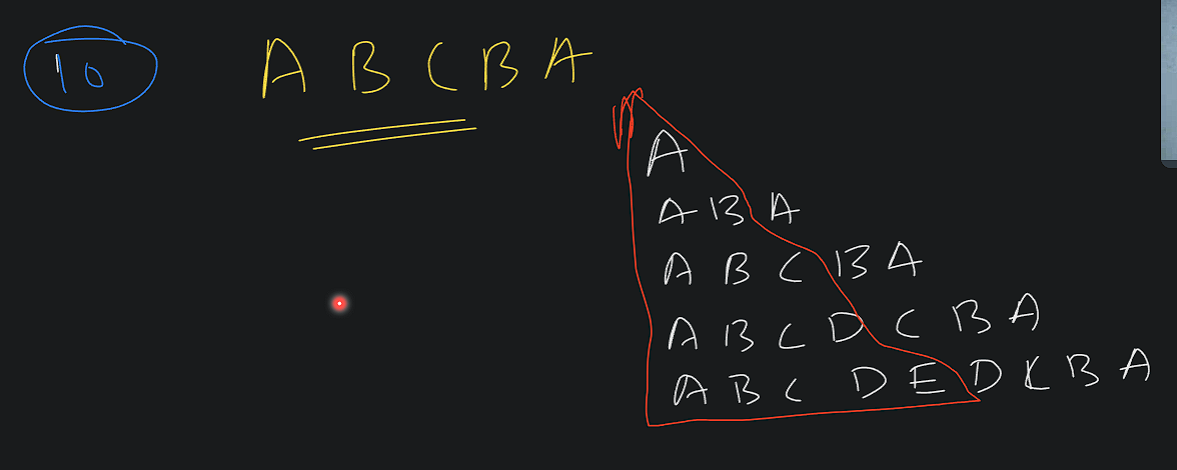 10
A B C B A
A
A B A
A B C B A
A B C D C B A
A B C D E D C B A